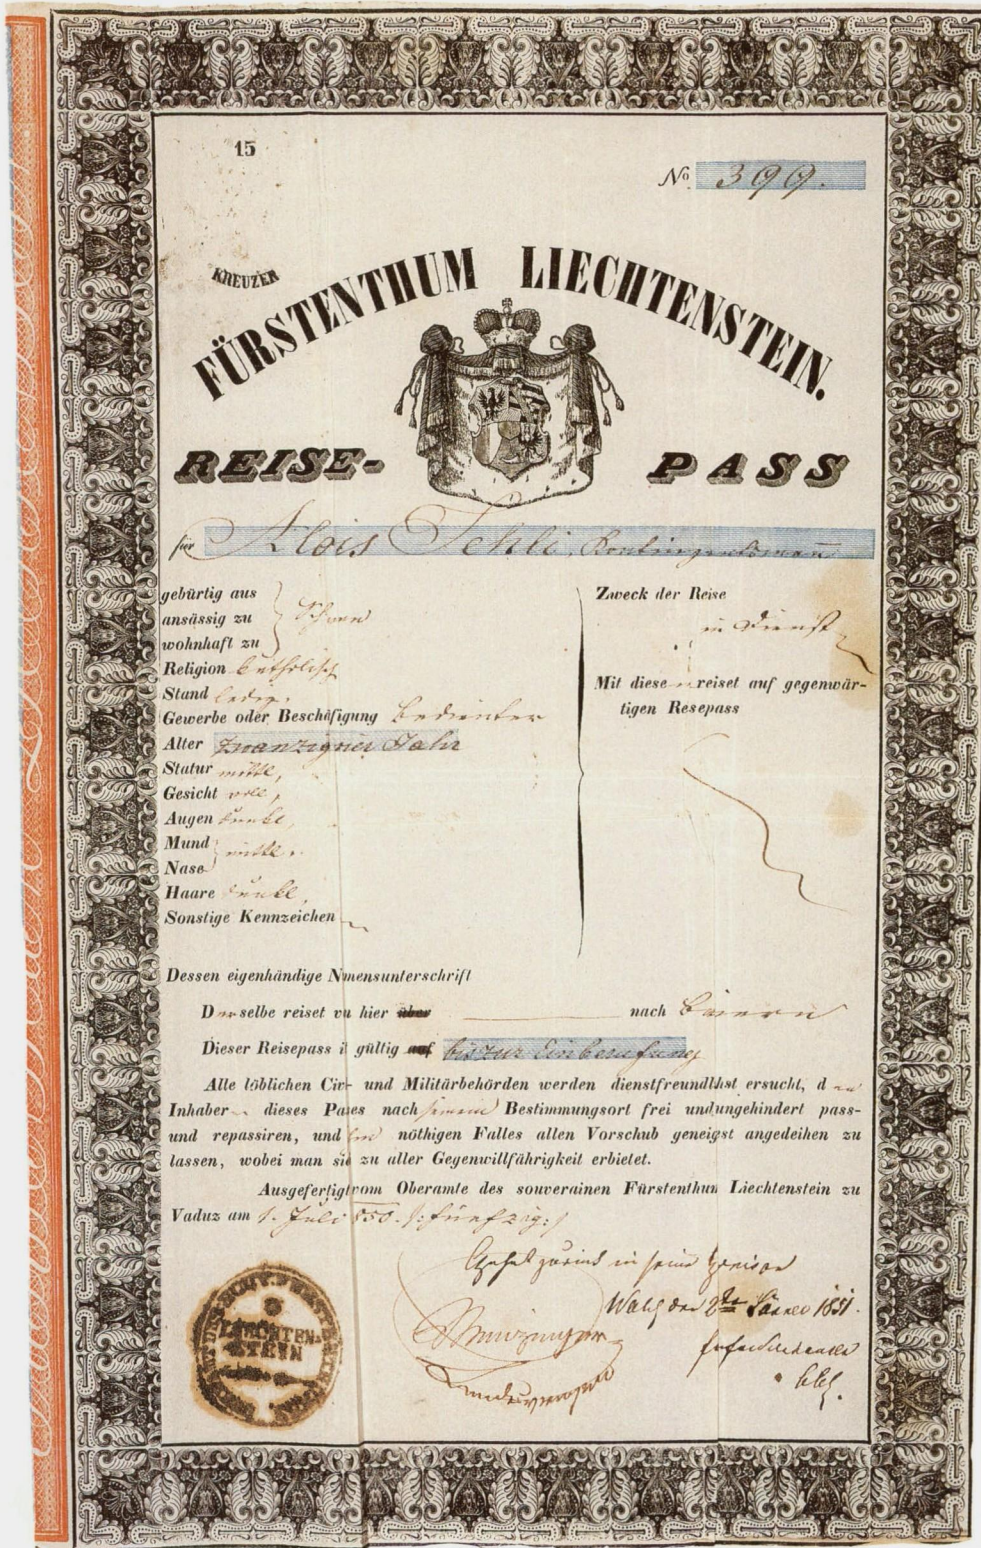 15
No. 399.
KREUZER
FÜRSTENTHUM LIECHTENSTEIN.
REISE- PASS
für Alois Fehli, Kontingentsmann
gebürtig aus
ansässig zu
wohnhaft zu
Schaan
Religion katholisch
Stand ledig.
Gewerbe oder Beschäfigung Bedienter
Alter zwanzig Jahr
Statur mittl,
Gesicht voll,
Augen dunkl,
Mund
Nase
mittl.
Haare dunkl,
Sonstige Kennzeichen
Zweck der Reise
in Dienst
Mit diese reiset auf gegenwär-
tigen Resepass
Dessen eigenhändige Nmensunterschrift
Derselbe reiset vn hier über nach Baiern
Dieser Reisepass it gültig auf bis zur Einberufung
Alle löblichen Civ- und Militärbehörden werden dienstfreundlhst ersucht, den
Inhaber dieses Paes nach seinem Bestimmungsort frei und ungehindert pass-
und repassiren, und nöthigen Falles allen Vorschub geneigst angedeihen zu
lassen, wobei man sie zu aller Gegenwillfährigkeit erbietet.
Ausgefertigt vom Oberamte des souverainen Fürstenthum Liechtenstein zu
Vaduz am 1. Juli 850. /: fünfzig :/
zurück in seine
den 2ten 1851.
Menzinger
Landesverweser
LIECHTEN-
STEIN